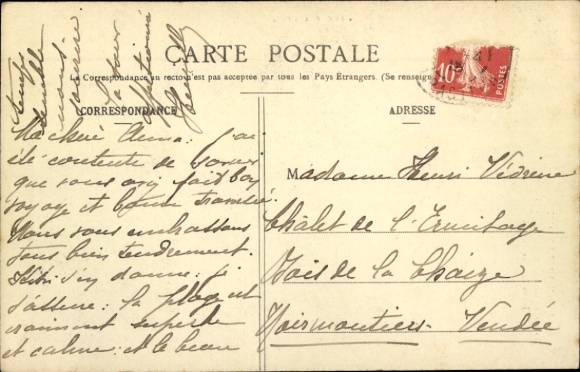 CARTE POSTALE
La Correspondance au recto n'est pas acceptée par tous les Pays Étrangers. (Se renseign
CORRESPONDANCE
ADRESSE
10c
POSTES
Ma chère Anna: j'ai
été contente de savoir
que vous avez fait bon
voyage et bonne traversée.
Nous vous embrassons
tous bien tendrement.
s'en donne: je
t'assure: la plage est
vraiment superbe
et calme: et le beau
temps
Madame Henri Védrine
Châlet de l'Ermitage
Bois de la Chaize
Noirmoutiers- Vendée